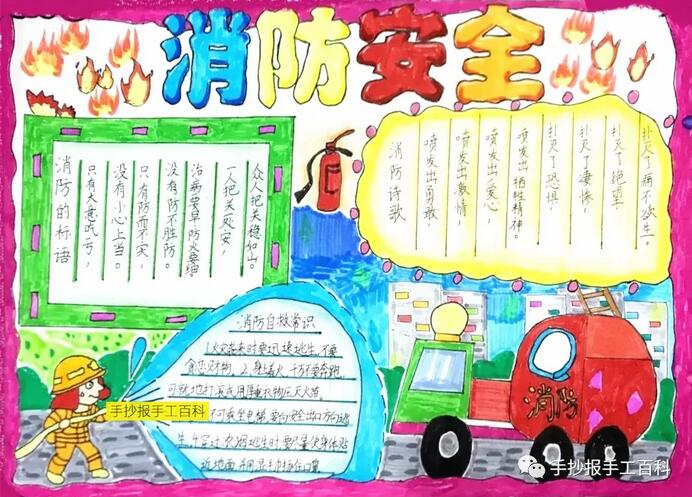 消防安全
消防的标语
只有大意吃亏，
没有小心上当。
只有防而不实，
没有防不胜防。
治病要早，防火要细。
一人把关一处安，
众人把关稳如山。
消防诗歌
喷发出勇敢，
喷发出激情，
喷发出爱心，
喷发出牺牲精神。
扑灭了恐惧，
扑灭了凄惨，
扑灭了绝望，
扑灭了痛不欲生。
消防自救常识
1.火灾袭来时要迅速逃生，不要
贪恋财物。2.身着火，千万不要奔跑，
可就地打滚或用厚重衣物压灭火苗。
不可乘坐电梯，要向安全出口方向逃
生。4.穿过浓烟逃生时，要尽量使身体贴
近地面，并用湿毛巾捂住口鼻
手抄报手工百科
消防
手抄报手工百科